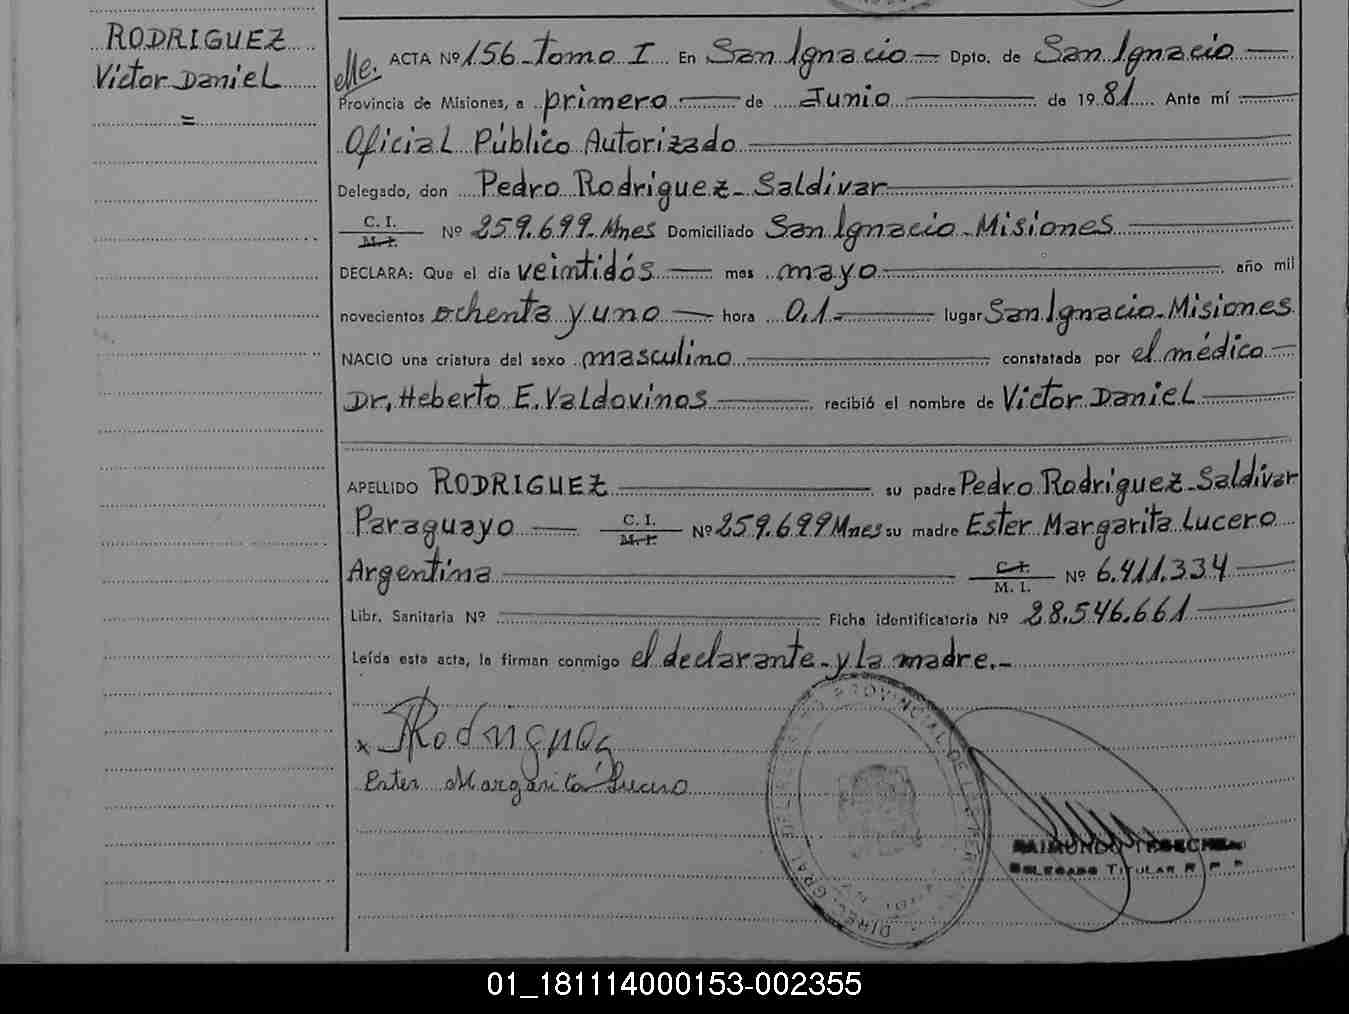 RODRIGUEZ
Víctor Daniel
=
elle.
ACTA Nº 156 - tomo I En San Ignacio — Dpto. de San Ignacio —
Provincia de Misiones, a primero — de Junio — de 1981 Ante mí —
Oficial Público Autorizado —
Delegado, don Pedro Rodriguez - Saldivar —
C. I.
M. I. Nº 259.699 - Mnes Domiciliado San Ignacio - Misiones —
DECLARA: Que el día veintidós — mes mayo — año mil
novecientos ochenta y uno — hora 0,1 — lugar San Ignacio - Misiones
NACIO una criatura del sexo masculino — constatada por el médico —
Dr. Heberto E. Valdovinos — recibió el nombre de Víctor Daniel —
APELLIDO RODRIGUEZ — su padre Pedro Rodriguez - Saldivar
Paraguayo — C. I.
M. I. Nº 259.699 Mnes su madre Ester Margarita Lucero
Argentina — C. I.
M. I. Nº 6.411.334 —
Libr. Sanitaria Nº — Ficha identificatoria Nº 28.546.661 —
Leída esta acta, la firman conmigo el declarante - y la madre.-
x PRodriguez
Ester Margarita Lucero
PROVINCIAL DE
DIREC. GRAL
RAIMUNDO
DELEGADO TITULAR R P P
01_181114000153-002355